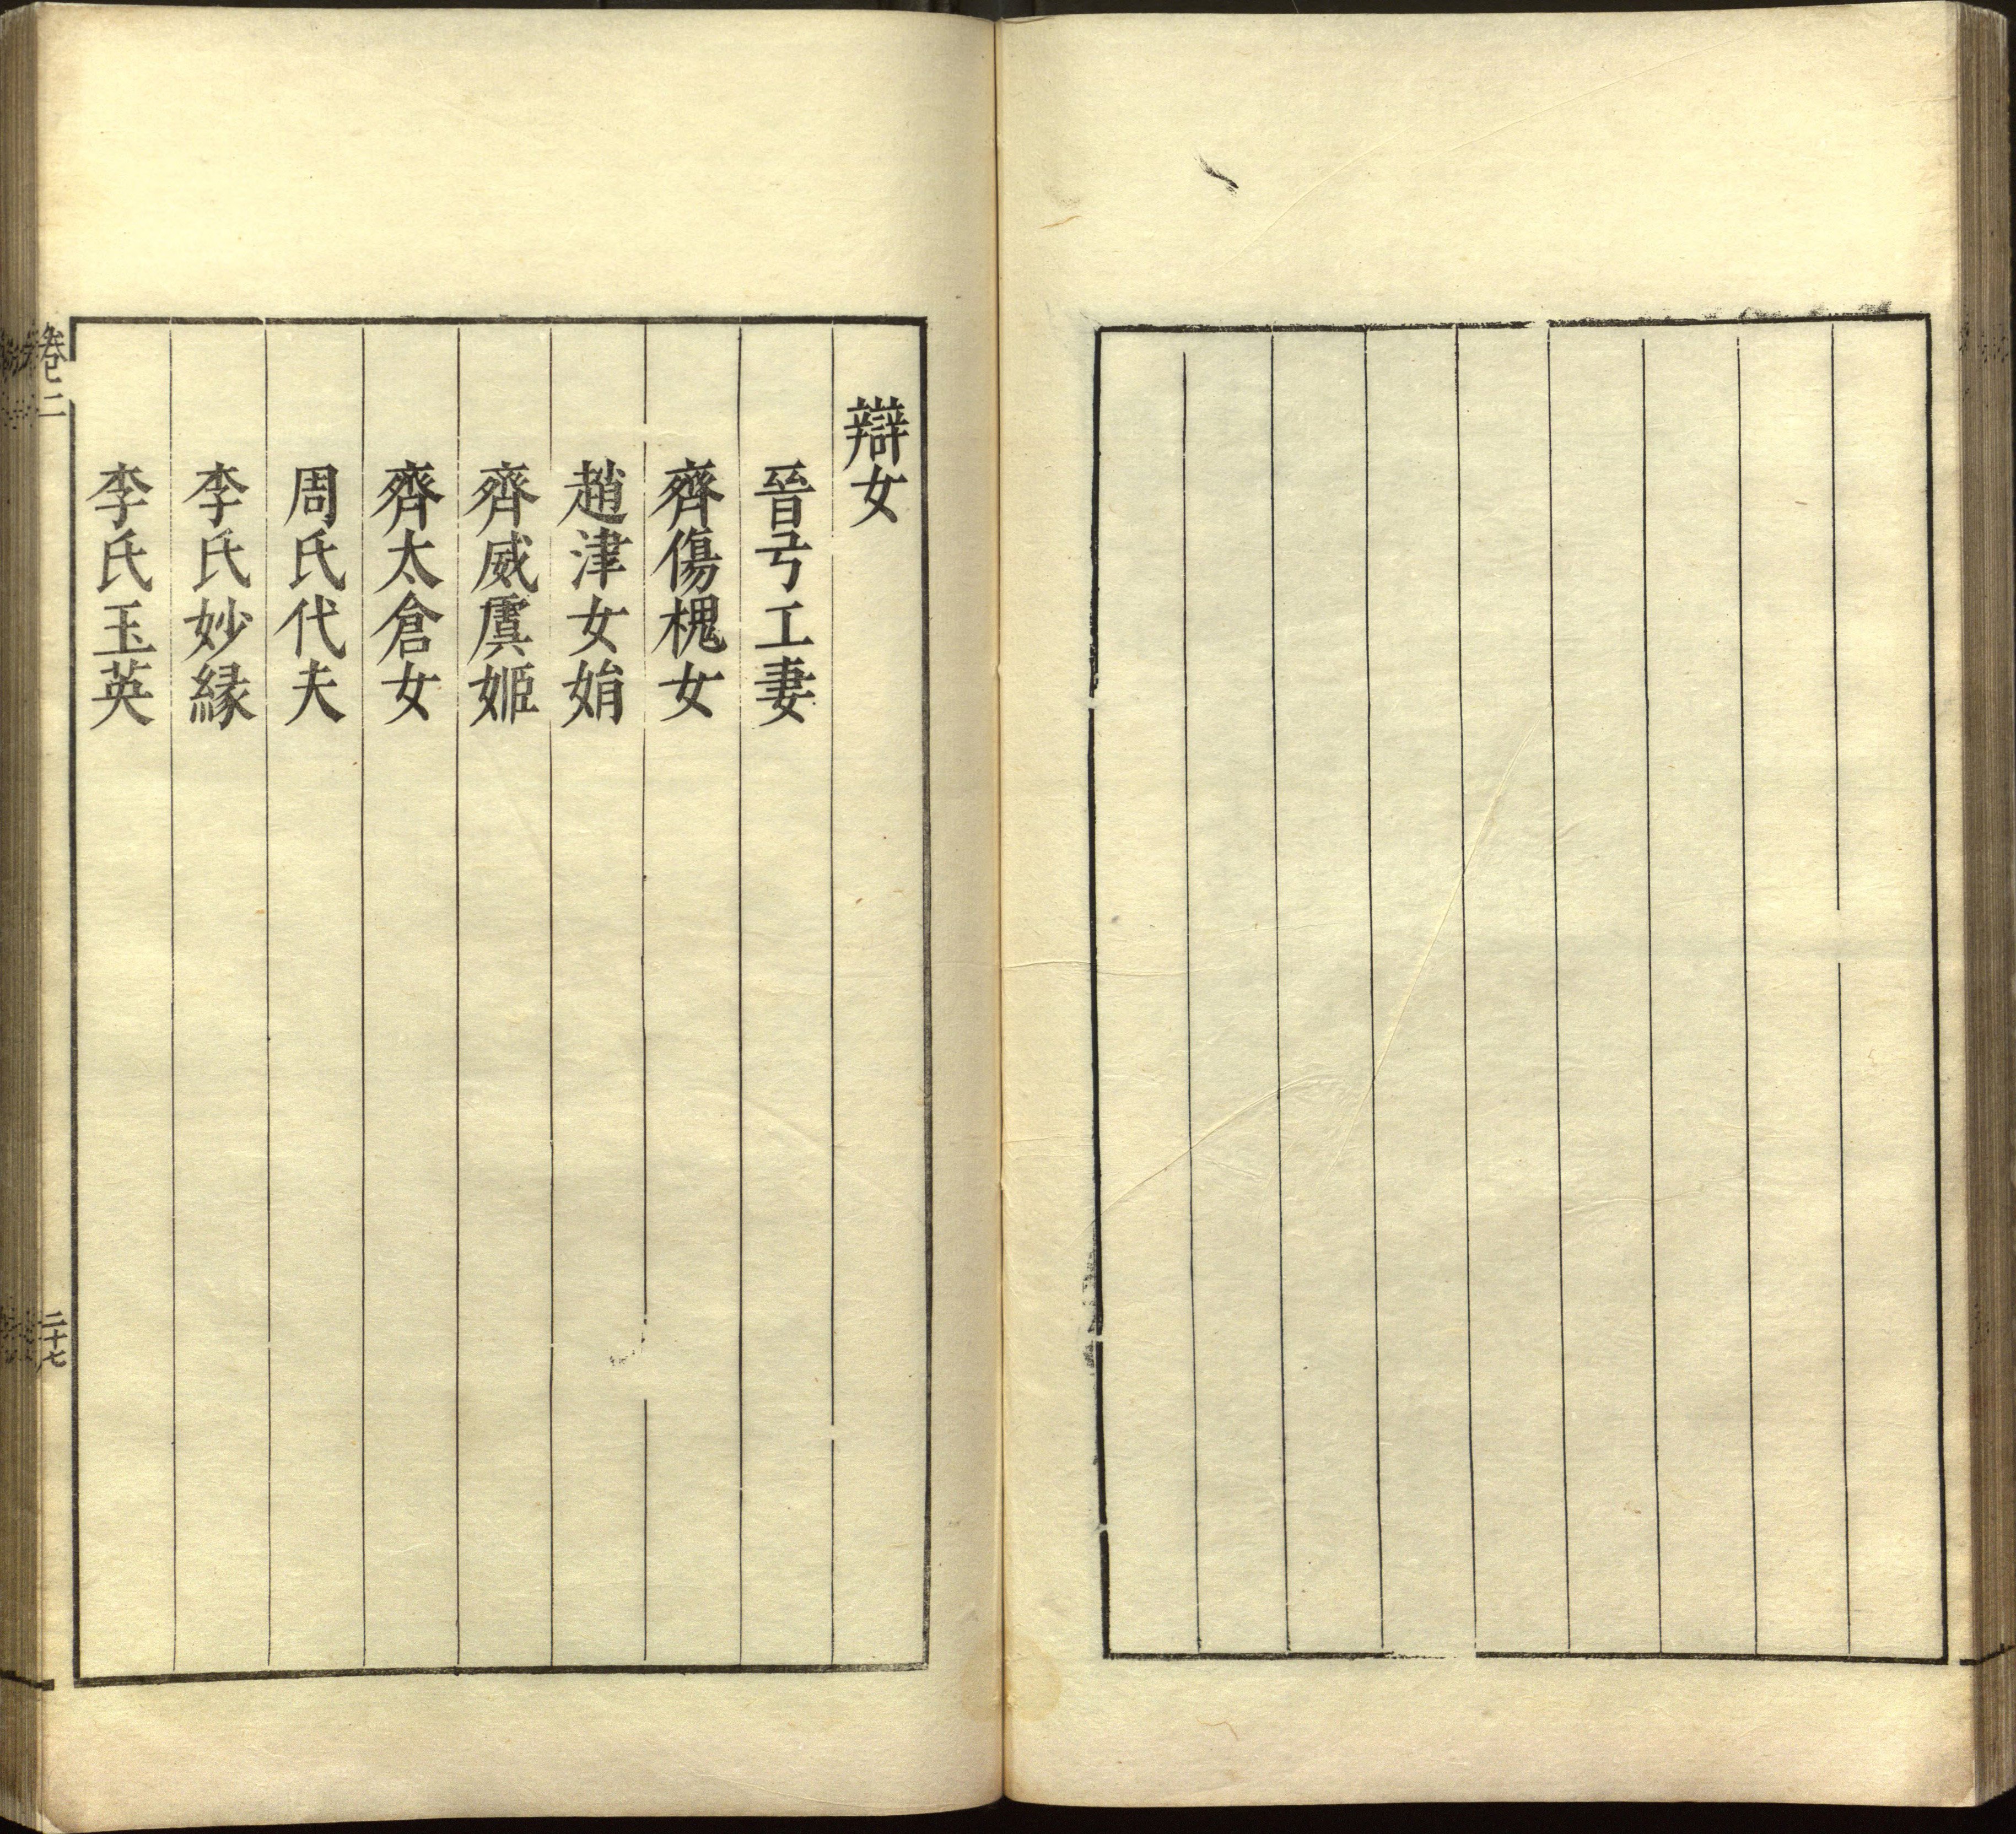 辯女
晉弓工妻
齊傷槐女
趙津女娟
齊威虞姬
齊太倉女
周氏代夫
李氏妙縁
李氏玉英
卷二
二十七